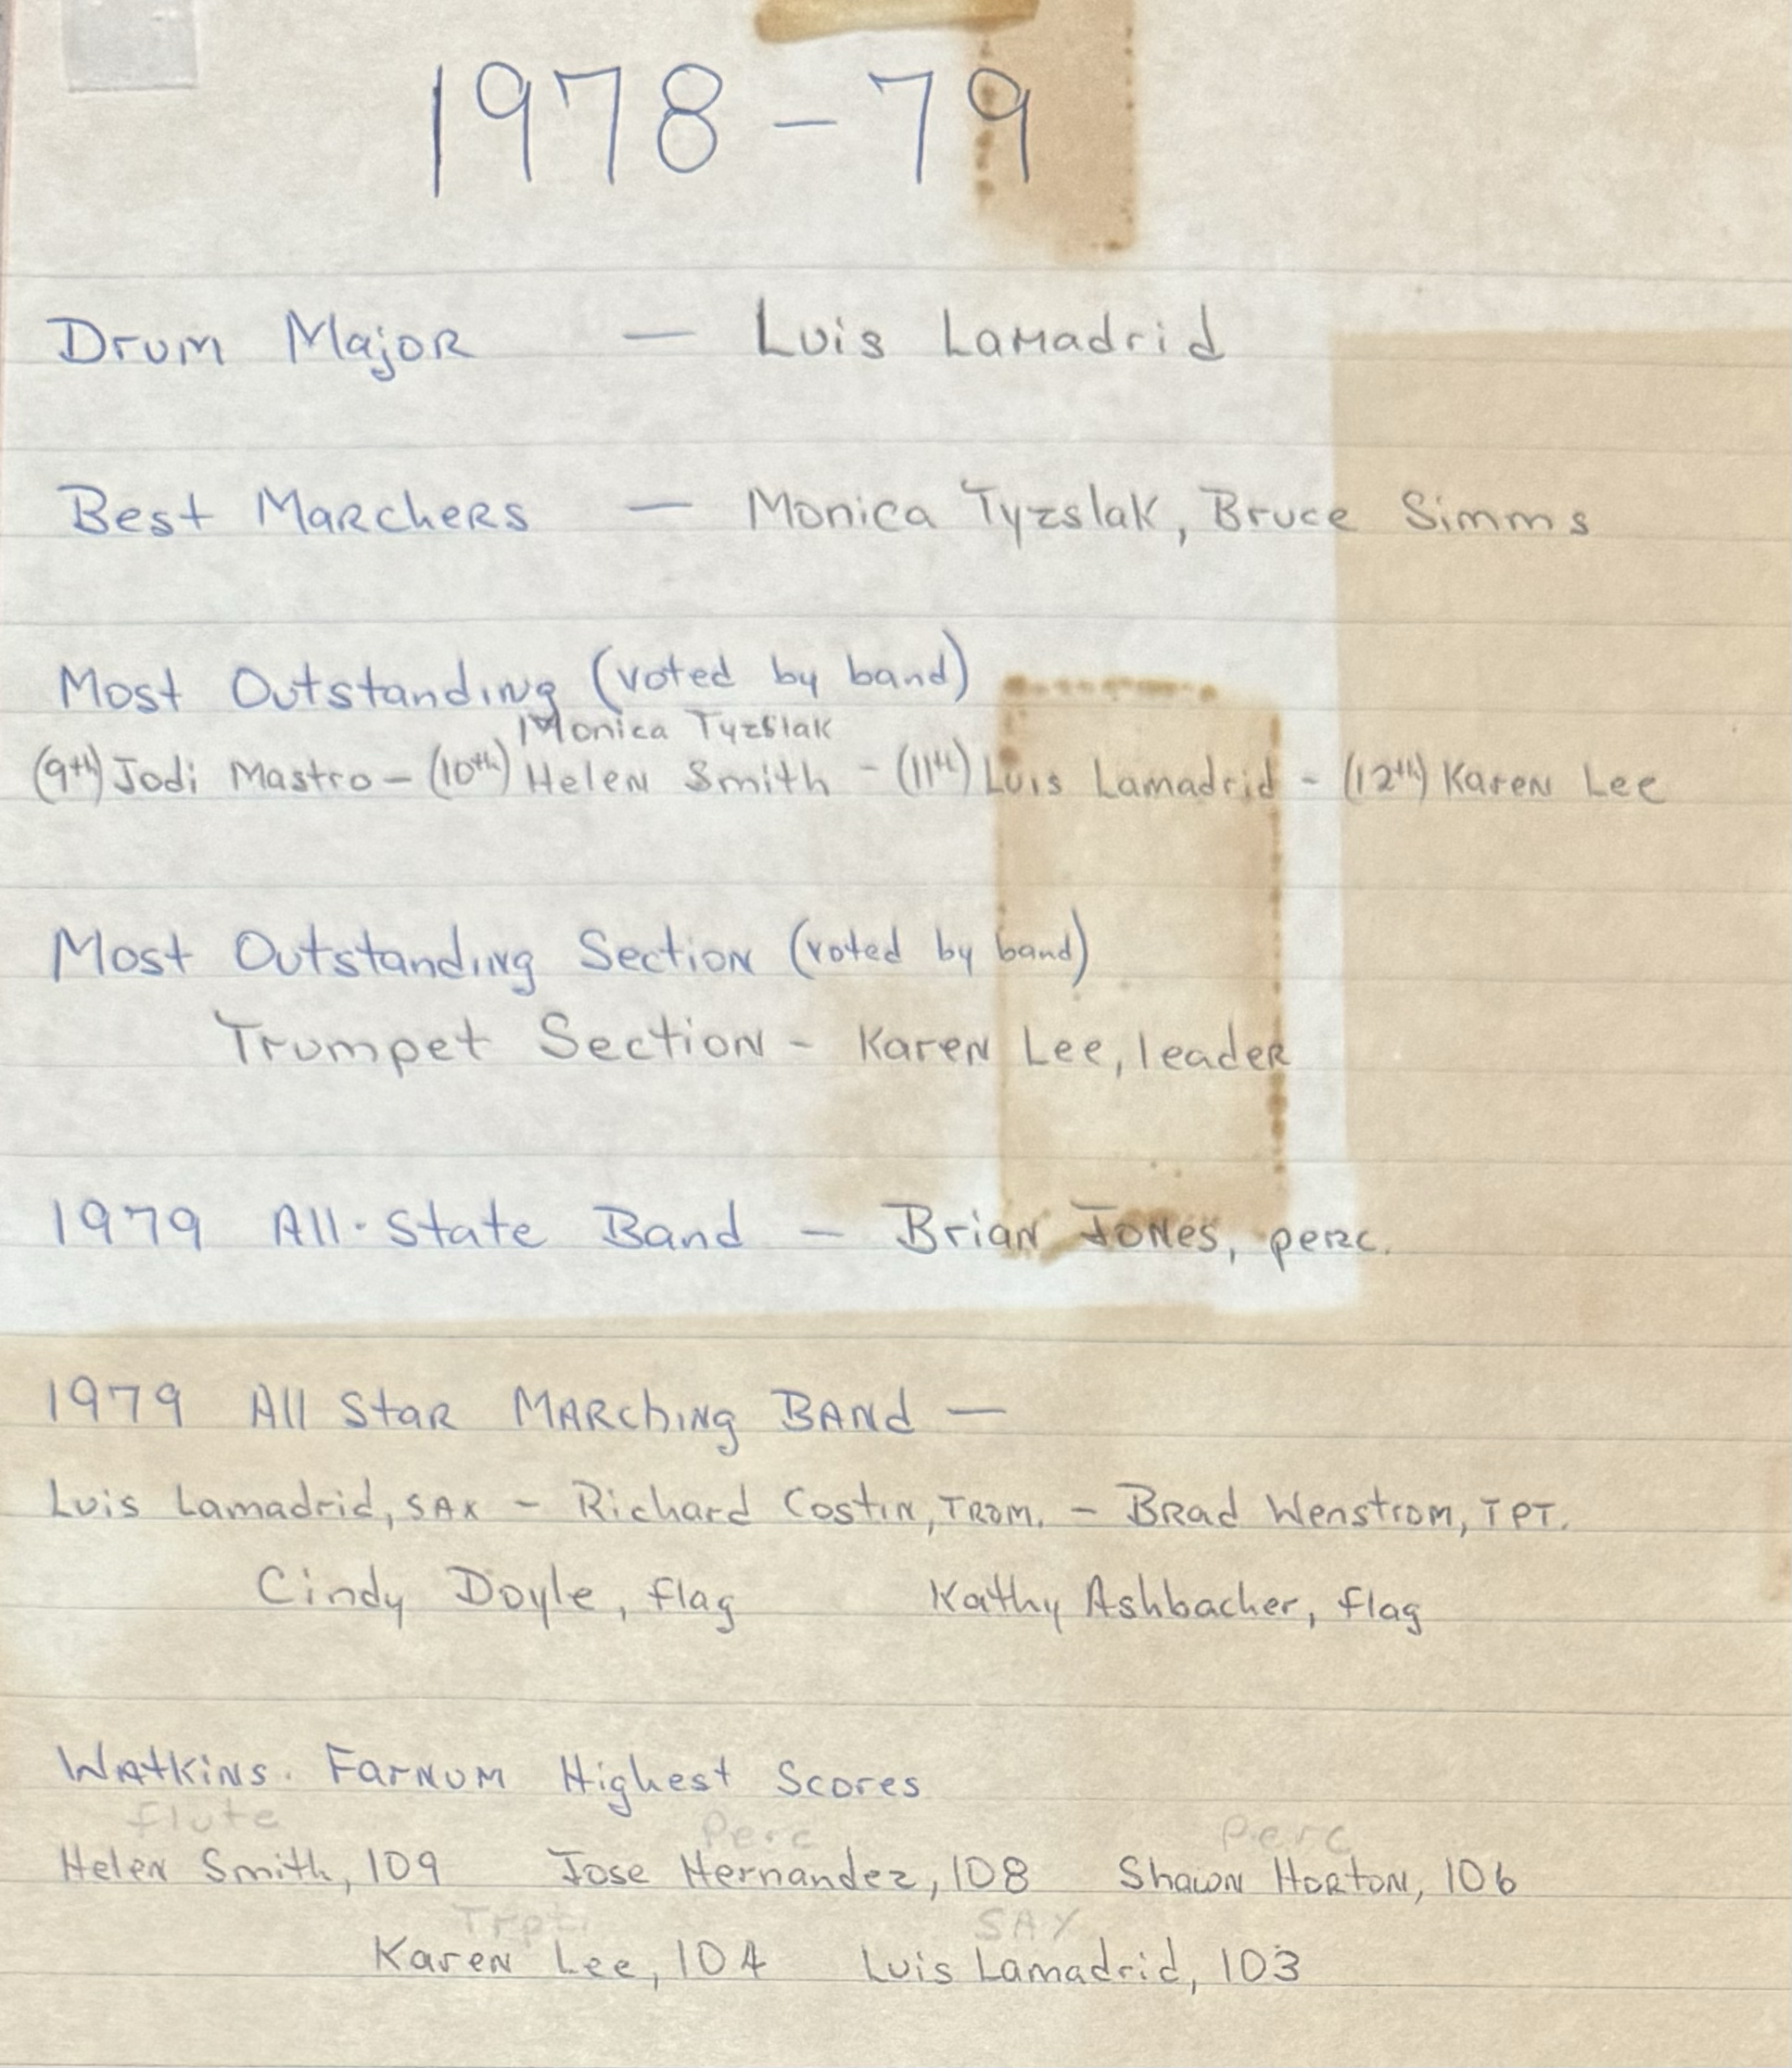 1978-79
Drum Major — Luis Lamadrid
Best Marchers — Monica Tyzslak, Bruce Simms
Most Outstanding (voted by band)
Monica Tyzslak
(9th) Jodi Mastro - (10th) Helen Smith - (11th) Luis Lamadrid - (12th) Karen Lee
Most Outstanding Section (voted by band)
Trumpet Section - Karen Lee, leader
1979 All-State Band — Brian Jones, perc.
1979 All Star Marching Band —
Luis Lamadrid, SAX - Richard Costin, TROM. - Brad Wenstrom, TPT.
Cindy Doyle, flag Kathy Ashbacher, flag
Watkins. Farnum Highest Scores
flute Perc Perc
Helen Smith, 109 Jose Hernandez, 108 Shawn Horton, 106
Trpt. SAX
Karen Lee, 104 Luis Lamadrid, 103